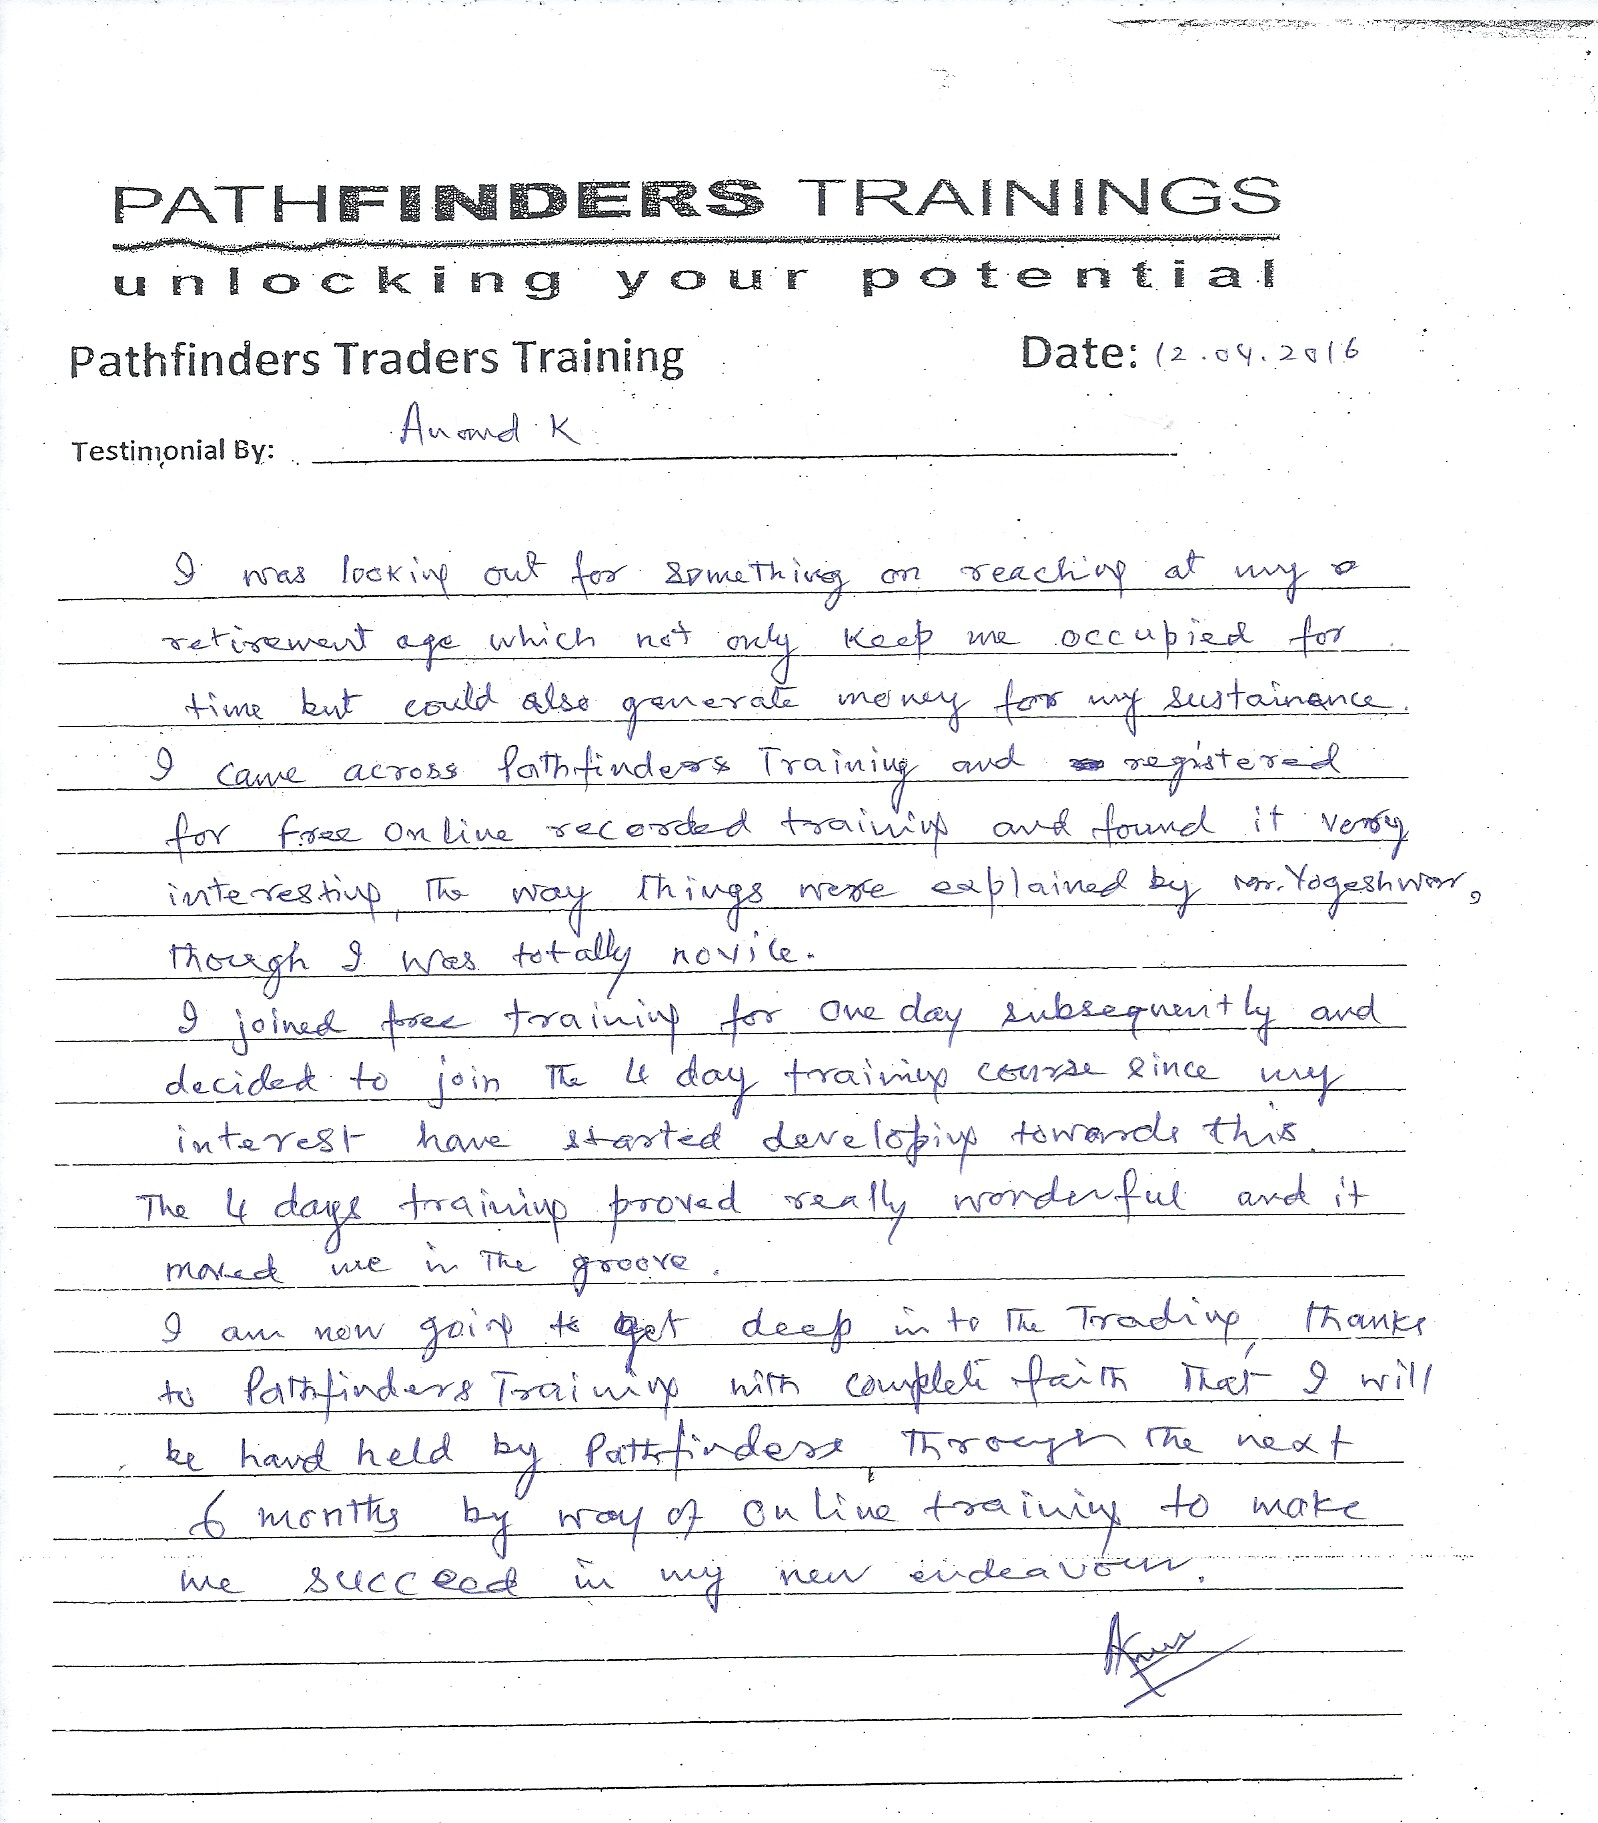 PATHFINDERS TRAININGS
unlocking your potential
Pathfinders Traders Training Date: 12.04.2016
Testimonial By: Anand K
I was looking out for something on reaching at my
retirement age which not only keep me occupied for
time but could also generate money for my sustainance.
I came across Pathfinders Training and registered
for free online recorded training and found it very
interesting, the way things were explained by Mr. Yogeshwar,
though I was totally novice.
I joined free training for one day subsequently and
decided to join the 4 day training course since my
interest have started developing towards this.
The 4 days training proved really wonderful and it
moved me in the groove.
I am now going to get deep in to the Trading, thanks
to Pathfinders Training with complete faith that I will
be hand held by Pathfinders through the next
6 months by way of online training to make
me succeed in my new endeavour.